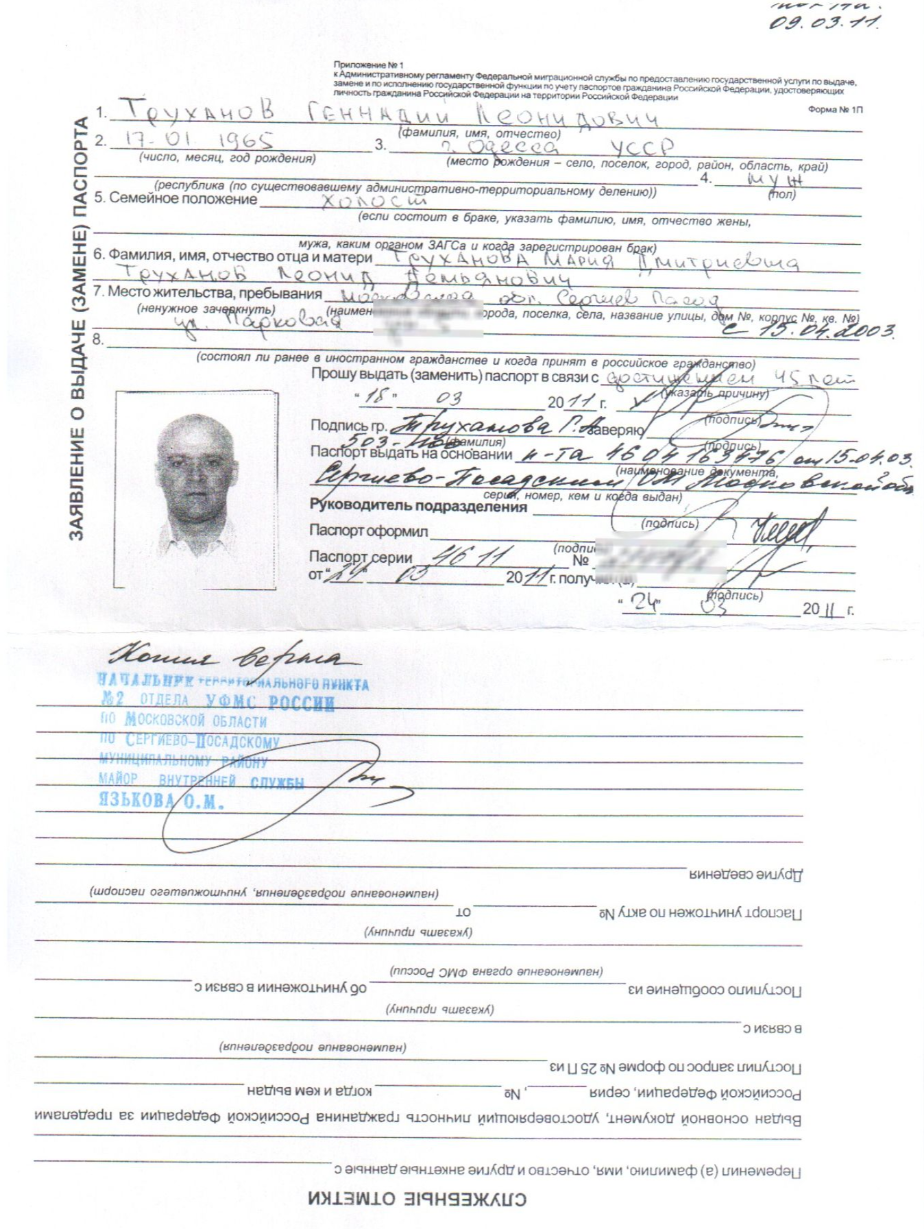 09.03.11.
Приложение № 1
к Административному регламенту Федеральной миграционной службы по предоставлению государственной услуги по выдаче,
замене и по исполнению государственной функции по учету паспортов гражданина Российской Федерации, удостоверяющих
личность гражданина Российской Федерации на территории Российской Федерации
Форма № 1П
ЗАЯВЛЕНИЕ О ВЫДАЧЕ (ЗАМЕНЕ) ПАСПОРТА
1. Труханов Геннадий Леонидович
(фамилия, имя, отчество)
2. 17-01 1965 3. г. Одесса УССР
(число, месяц, год рождения) (место рождения – село, поселок, город, район, область, край)
4. муж
(республика (по существовавшему административно-территориальному делению)) (пол)
5. Семейное положение холост
(если состоит в браке, указать фамилию, имя, отчество жены,
мужа, каким органом ЗАГСа и когда зарегистрирован брак)
6. Фамилия, имя, отчество отца и матери Труханова Мария Дмитриевна
Труханов Леонид Демьянович
7. Место жительства, пребывания Московская обл. Сергиев Посад
(ненужное зачеркнуть) города, поселка, села, название улицы, дом №, корпус №, кв. №)
ул. Парковая с 15.04.2003.
8.
(состоял ли ранее в иностранном гражданстве и когда принят в российское гражданство)
Прошу выдать (заменить) паспорт в связи с достижением 45 лет
(указать причину)
"18" 03 2011 г.
(подпись)
Подпись гр. Труханова Г.Л. заверяю
(фамилия) (подпись)
503-
Паспорт выдать на основании п-та 46 04 163476 от 15.04.03.
(наименование документа,
Сергиево-Посадским ОМ Московской обл
серия, номер, кем и когда выдан)
Руководитель подразделения
(подпись)
Паспорт оформил
Паспорт серии 46 11 №
от "24" 03 2011 г.
(подпись)
"24" 03 2011 г.
Копия верна
НАЧАЛЬНИК ТЕРРИТОРИАЛЬНОГО ПУНКТА
№2 ОТДЕЛА УФМС РОССИИ
ПО МОСКОВСКОЙ ОБЛАСТИ
ПО СЕРГИЕВО-ПОСАДСКОМУ
МУНИЦИПАЛЬНОМУ РАЙОНУ
МАЙОР ВНУТРЕННЕЙ СЛУЖБЫ
ЯЗЬКОВА О.М.
СЛУЖЕБНЫЕ ОТМЕТКИ
Переменил (а) фамилию, имя, отчество и другие анкетные данные с
Выдан основной документ, удостоверяющий личность гражданина Российской Федерации за пределами
Российской Федерации, серия , № когда и кем выдан
Поступил запрос по форме № 25 П из
(наименование подразделения)
в связи с
(указать причину)
Поступило сообщение из об уничтожении в связи с
(наименование органа ФМС России)
(указать причину)
Паспорт уничтожен по акту № от
(наименование подразделения, уничтожившего паспорт)
Другие сведения